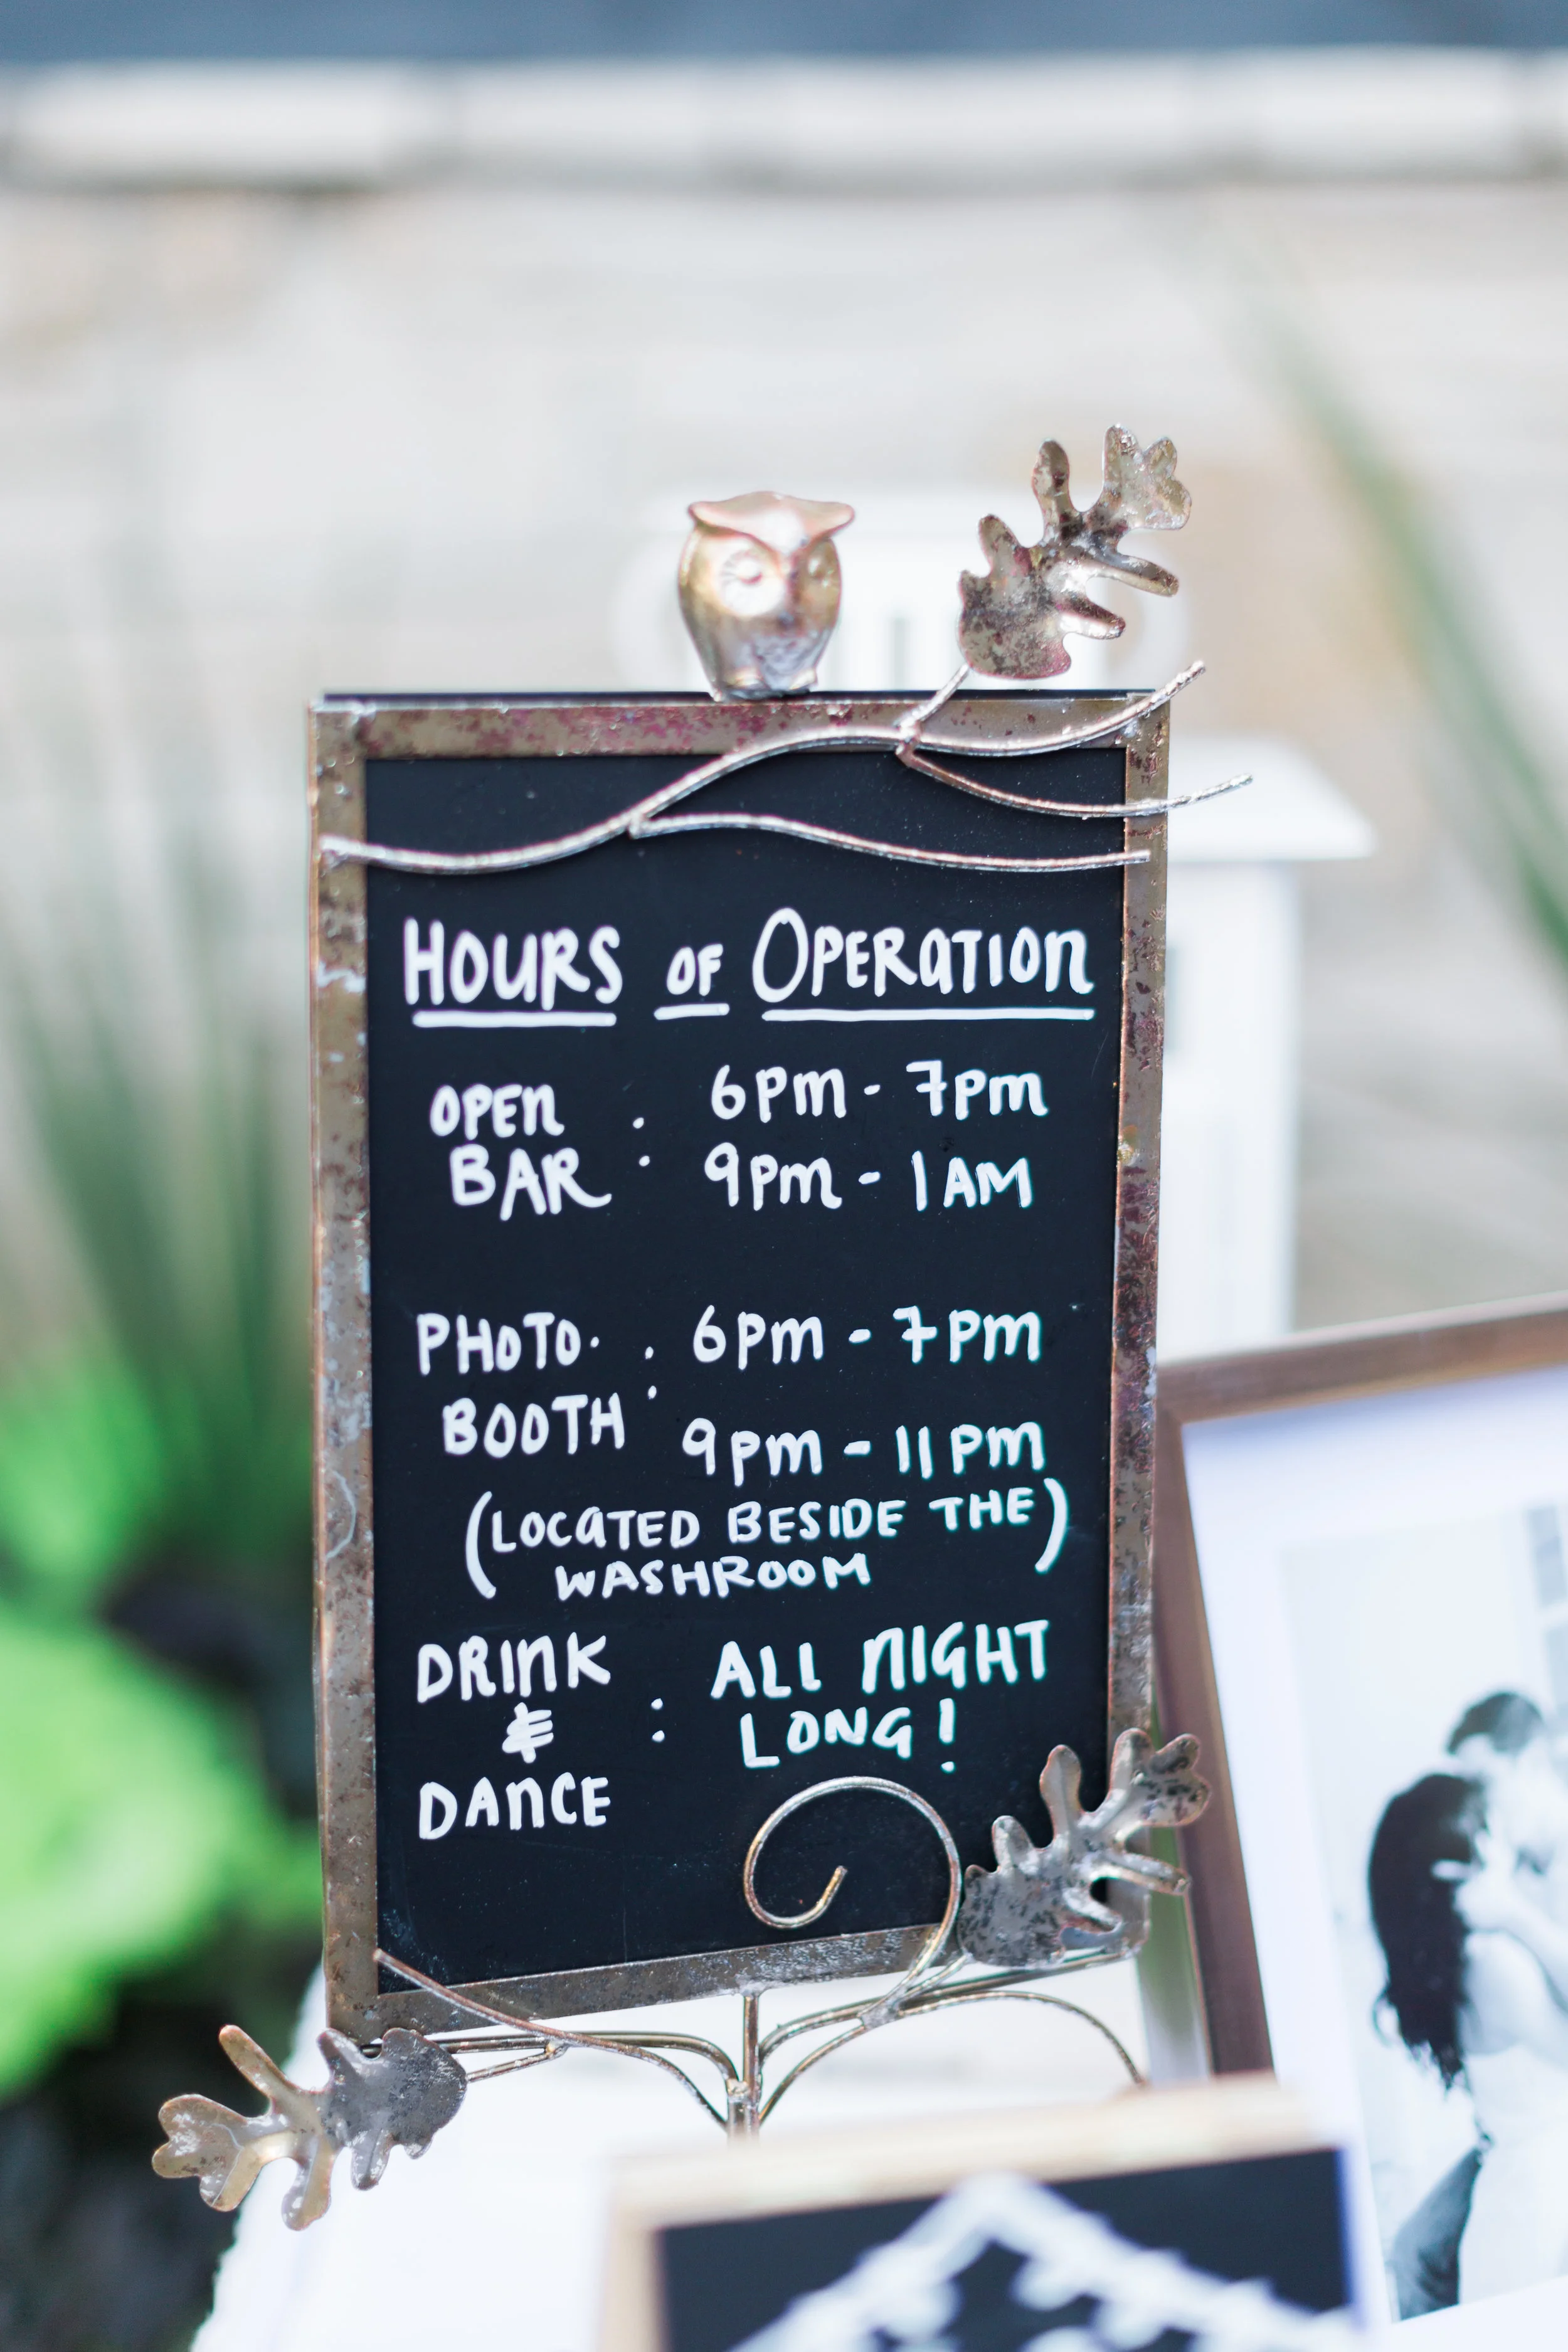 HOURS OF OPERATION
OPEN : 6pm - 7pm
BAR : 9pm - 1AM
PHOTO. : 6pm - 7pm
BOOTH 9pm - 11pm
(LOCATED BESIDE THE)
WASHROOM
DRINK : ALL NIGHT
& LONG!
DANCE